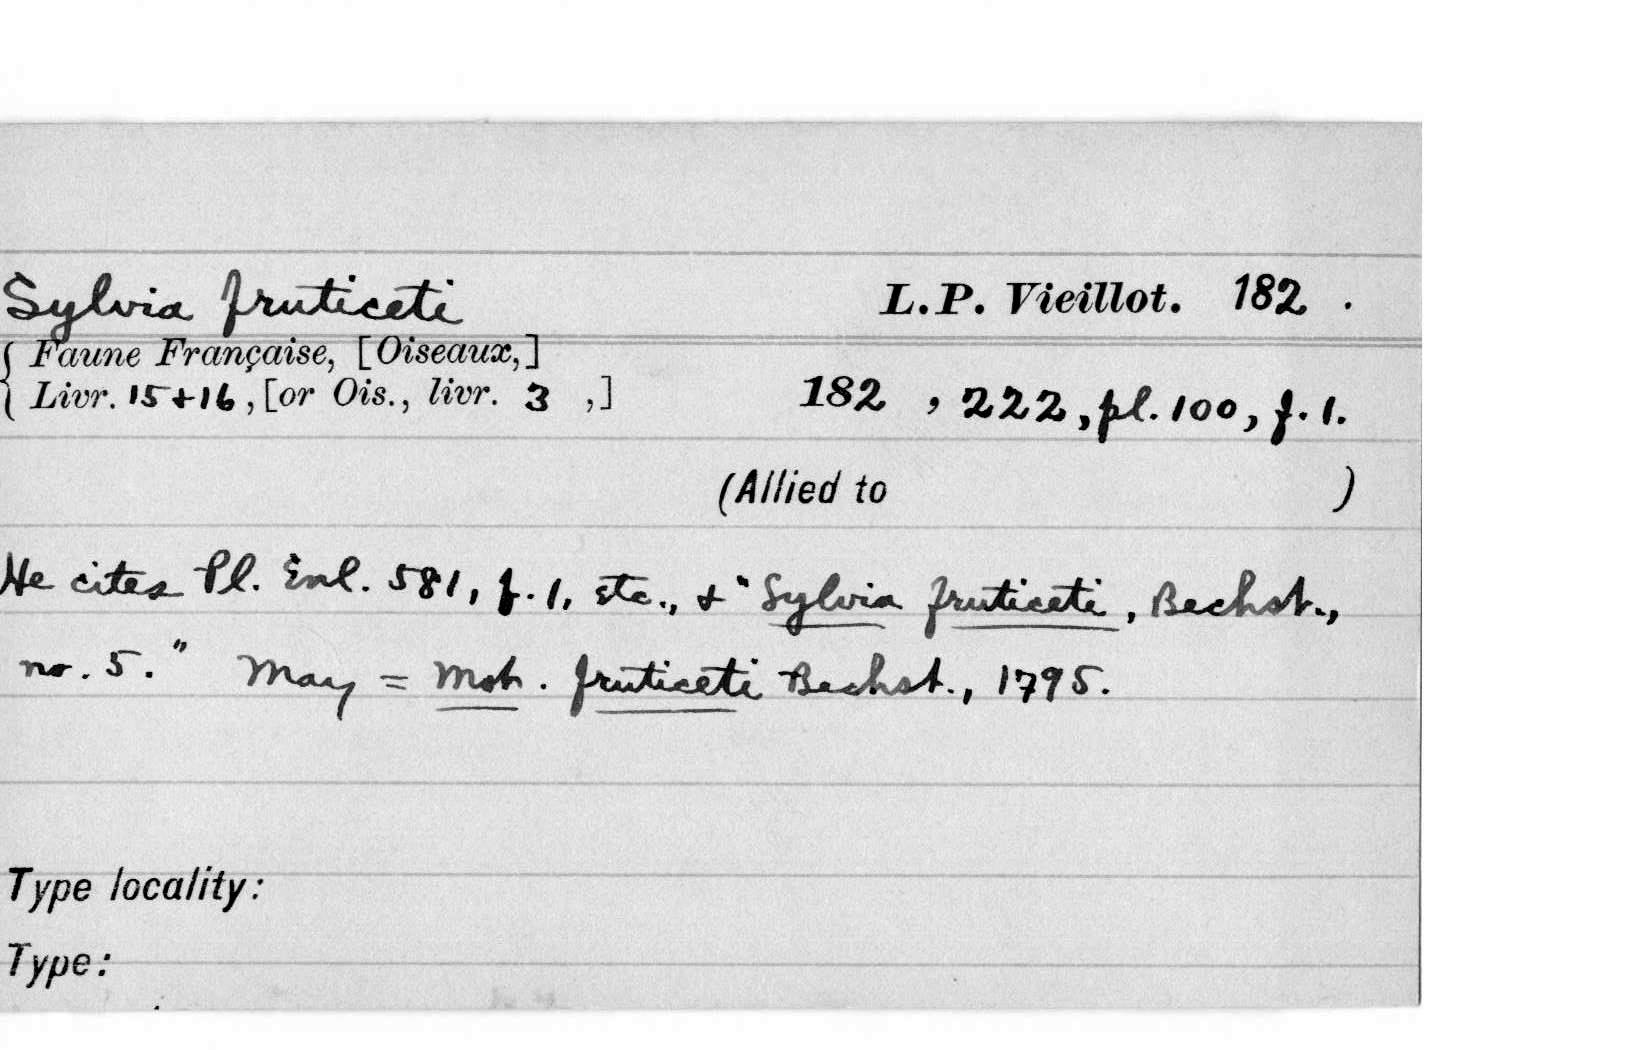 Sylvia fruticeti L.P. Vieillot. 182 .
{ Faune Française, [Oiseaux,]
{ Livr. 15+16, [or Ois., livr. 3 ,] 182 , 222, pl. 100, f. 1.
(Allied to )
He cites Pl. Enl. 581, f. 1, etc., & "Sylvia fruticeti, Bechst.,
no. 5." May = Mot. fruticeti Bechst., 1795.
Type locality:
Type: